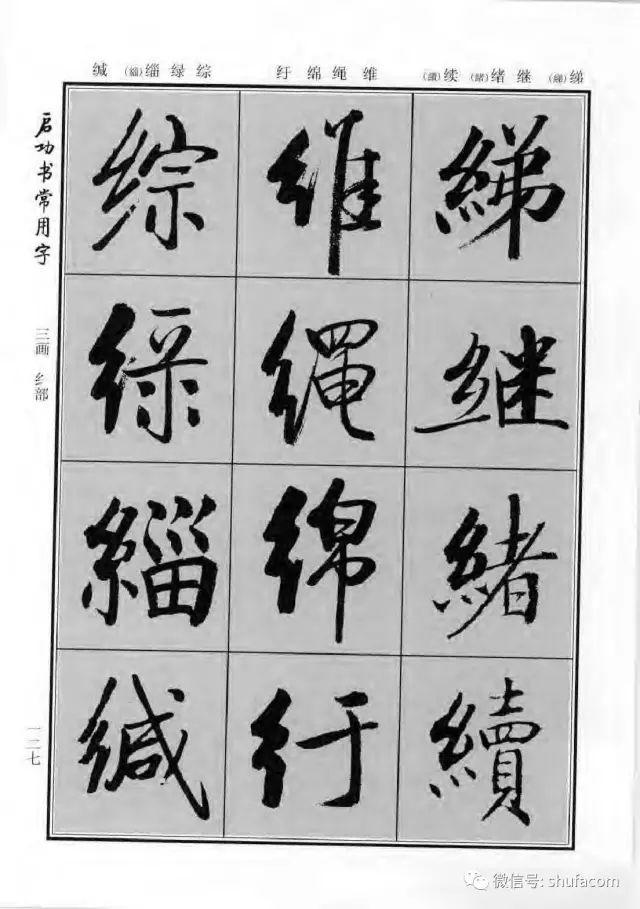 绨(綈) 继 绪(緒) 续(續)
维 绳 绵 纡
综 绿 缁(緇) 缄
綈
继
緒
續
维
绳
绵
纡
综
绿
緇
缄
启功书常用字
三画 纟部
一二七
微信号: shufacom